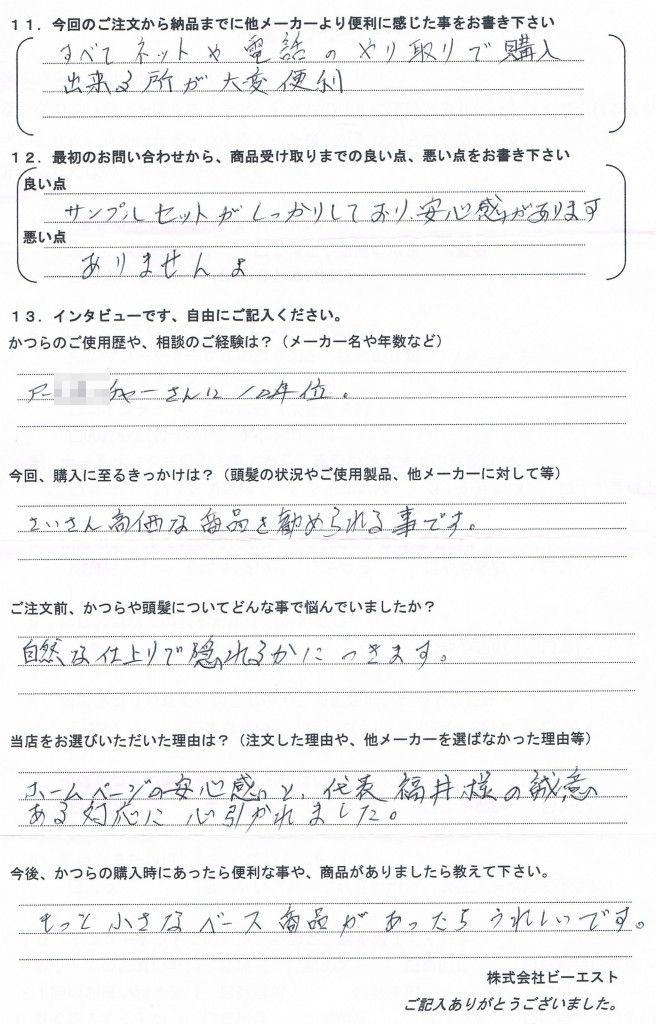 １１．今回のご注文から納品までに他メーカーより便利に感じた事をお書き下さい
すべてネットや電話のやり取りで購入
出来る所が大変便利
１２．最初のお問い合わせから、商品受け取りまでの良い点、悪い点をお書き下さい
良い点
サンプルセットがしっかりしており、安心感があります
悪い点
ありませんよ
１３．インタビューです、自由にご記入ください。
かつらのご使用歴や、相談のご経験は？（メーカー名や年数など）
アー チャーさんに１０年位。
今回、購入に至るきっかけは？（頭髪の状況やご使用製品、他メーカーに対して等）
さいさん高価な商品を勧められる事です。
ご注文前、かつらや頭髪についてどんな事で悩んでいましたか？
自然な仕上りで隠れるかにつきます。
当店をお選びいただいた理由は？（注文した理由や、他メーカーを選ばなかった理由等）
ホームページの安心感と、代表 福井様の誠意
ある対応に心引かれました。
今後、かつらの購入時にあったら便利な事や、商品がありましたら教えて下さい。
もっと小さなベース商品があったらうれしいです。
株式会社ビーエスト
ご記入ありがとうございました。